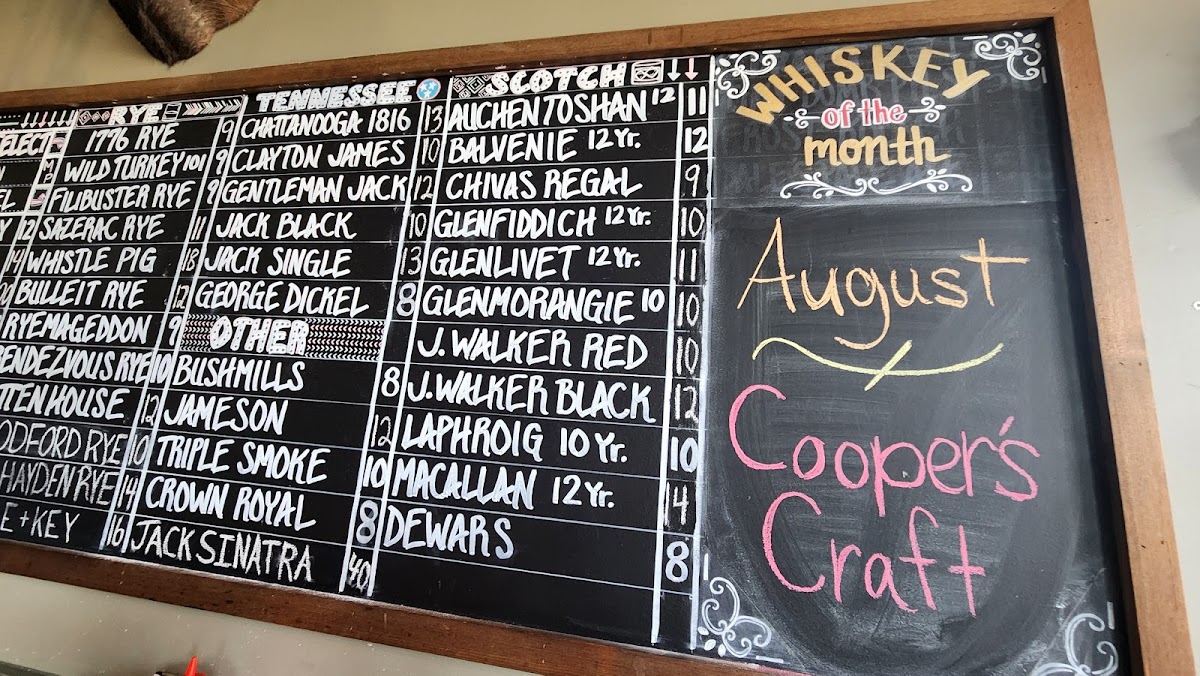 ELECT
RYE
1776 RYE 9
WILD TURKEY 101 9
FILIBUSTER RYE 9
SAZERAC RYE 11
WHISTLE PIG 18
BULLEIT RYE 12
RYEMAGEDDON 9
ENDEZVOUS RYE 10
TTENHOUSE 12
ODFORD RYE 10
HAYDEN RYE 14
E + KEY 16
TENNESSEE
CHATTANOOGA 1816 13
CLAYTON JAMES 10
GENTLEMAN JACK 12
JACK BLACK 10
JACK SINGLE 13
GEORGE DICKEL 8
OTHER
BUSHMILLS 8
JAMESON 12
TRIPLE SMOKE 10
CROWN ROYAL 8
JACK SINATRA 40
SCOTCH
AUCHENTOSHAN 12 11
BALVENIE 12 Yr. 12
CHIVAS REGAL 9
GLENFIDDICH 12 Yr. 10
GLENLIVET 12 Yr. 11
GLENMORANGIE 10 10
J. WALKER RED 10
J. WALKER BLACK 12
LAPHROIG 10 Yr. 10
MACALLAN 12 Yr. 14
DEWARS 8
WHISKEY
of the
month
August
Cooper's
Craft